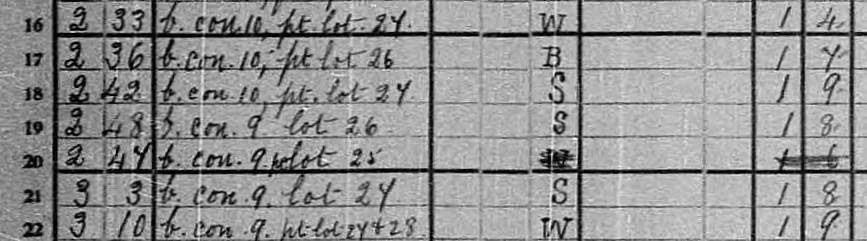 16 2 33 b. con. 10, pt. lot. 27. W 1 4
17 2 36 b. con. 10, pt lot 26 B 1 7
18 2 42 b. con. 10, pt. lot 27 S 1 9
19 2 48 b. con. 9 lot 26 S 1 8
20 2 47 b. con. 9 pt lot 25
21 3 3 b. con. 9. lot 27 S 1 8
22 3 10 b. con. 9. pt lot 27 + 28 W 1 9